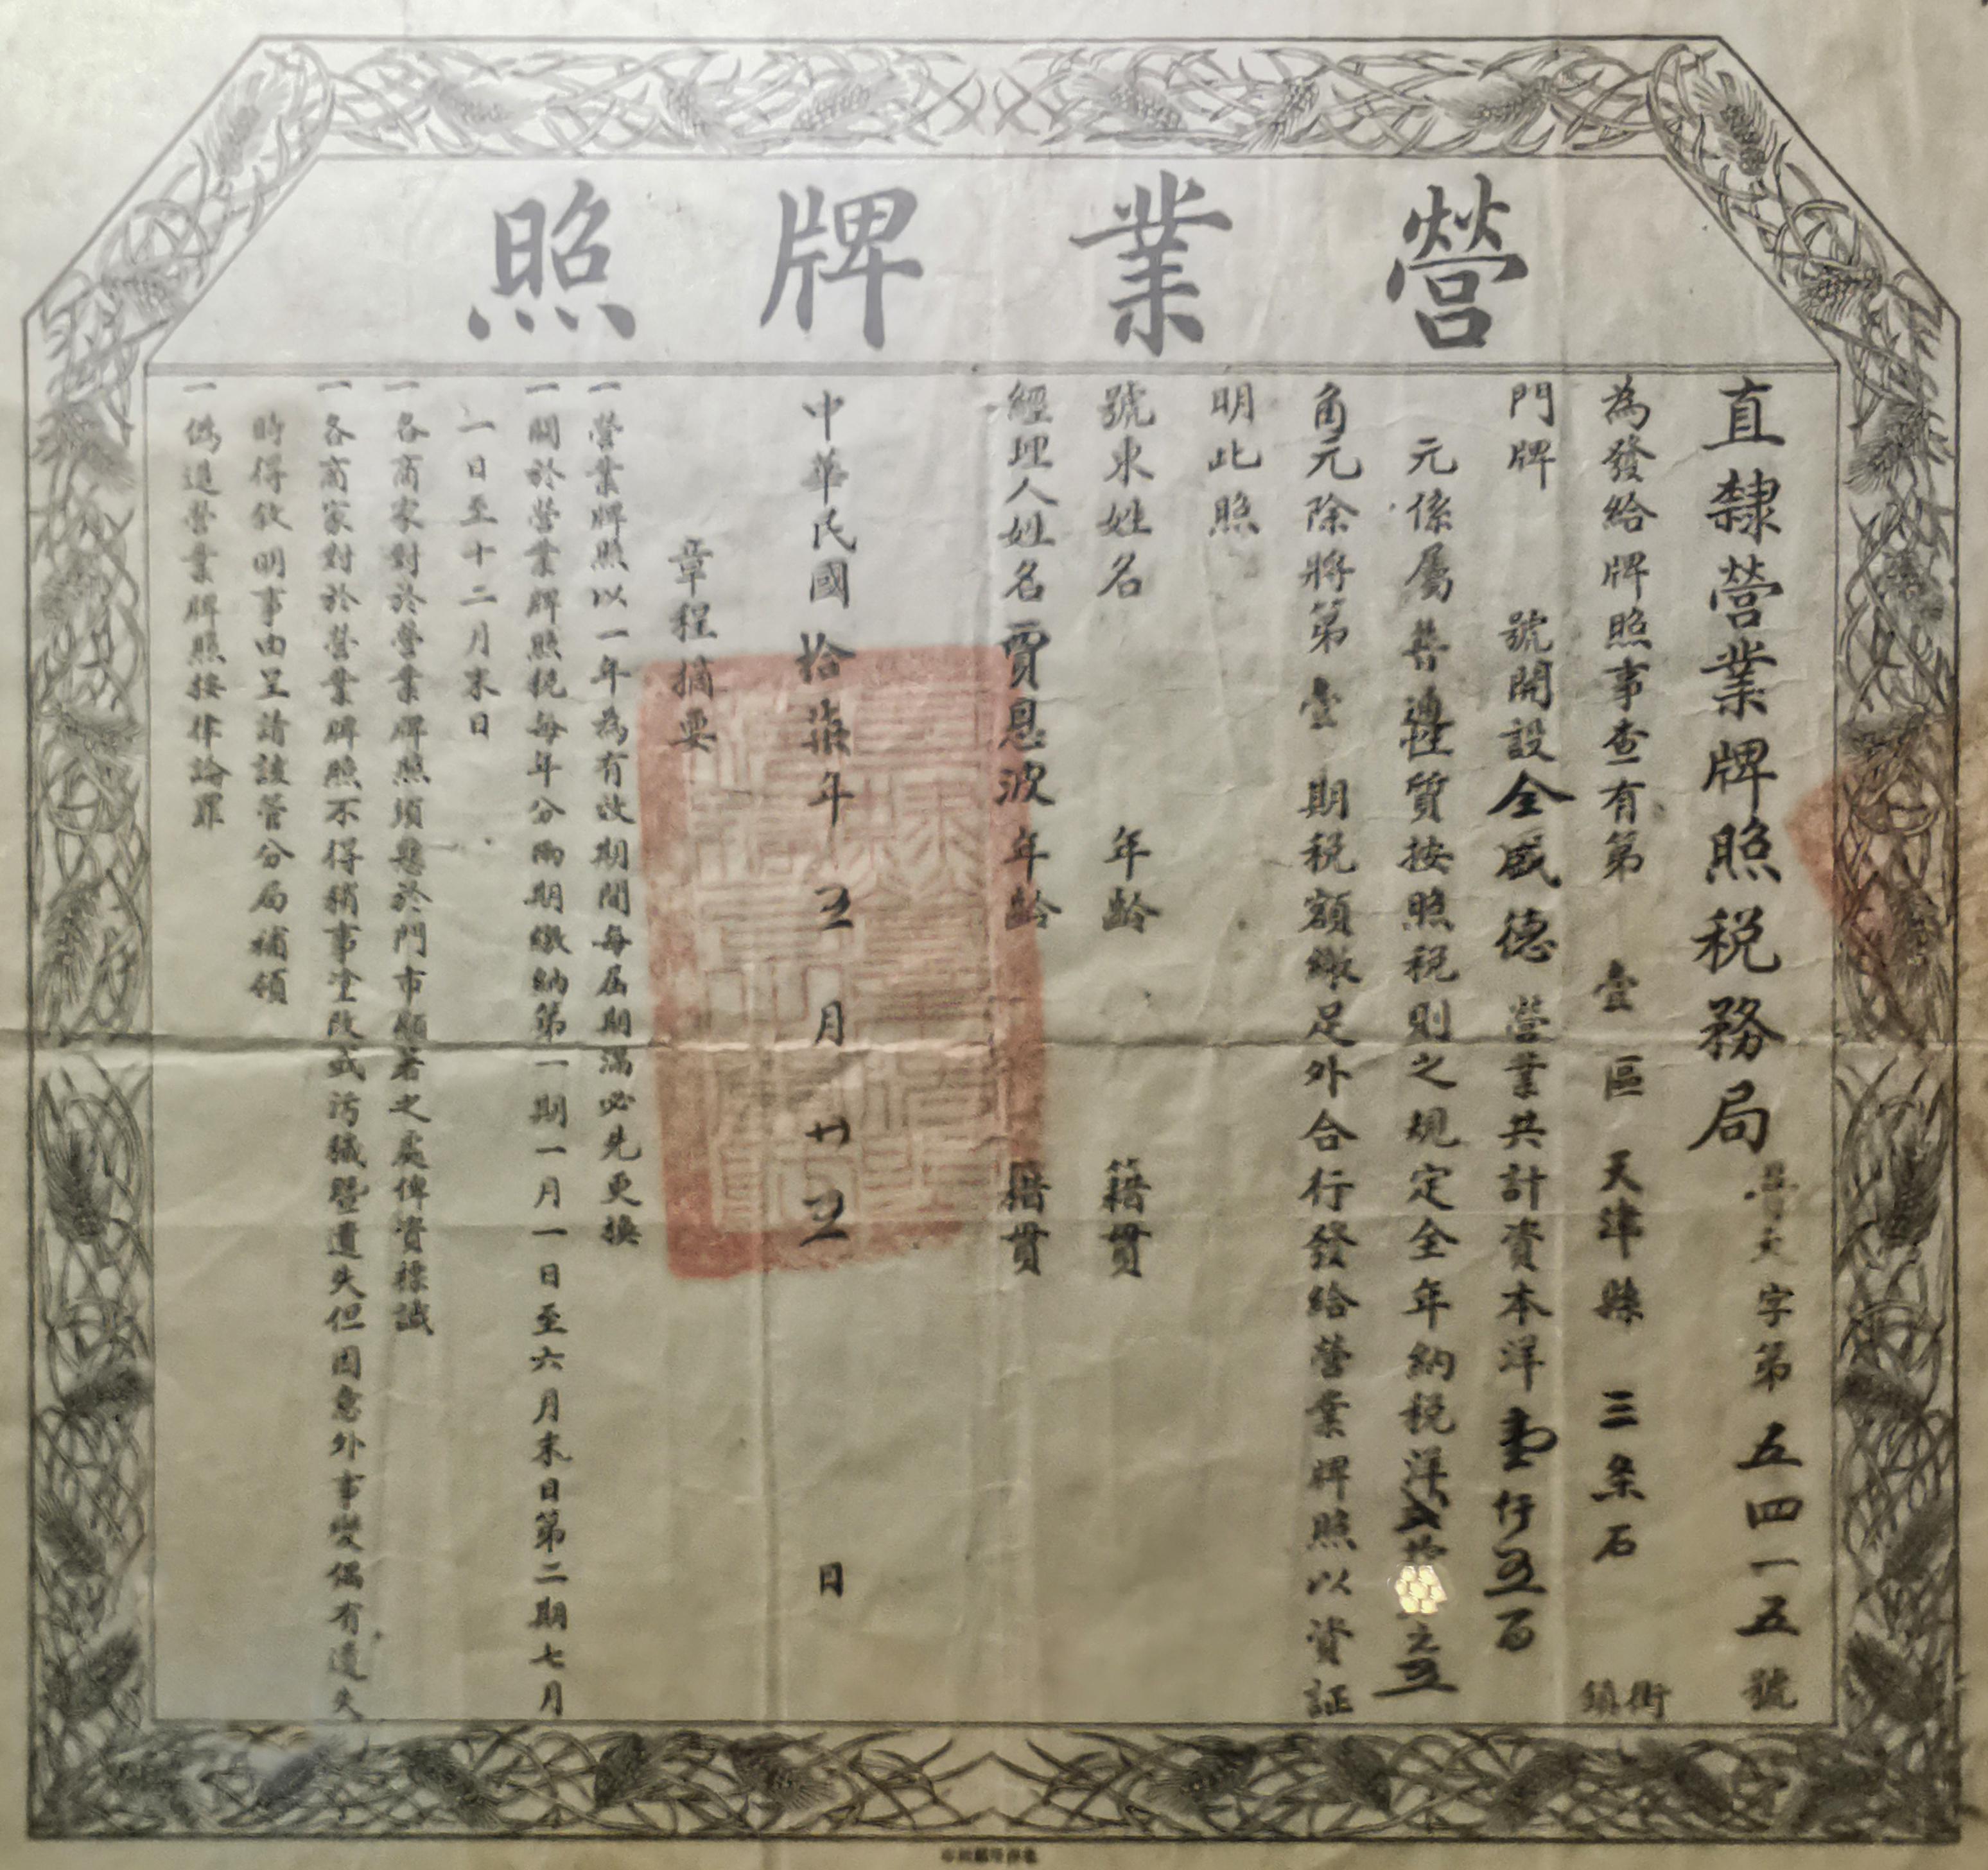 營業牌照
直隸營業牌照税務局
字第五四一五號
為發給牌照事查有第壹區天津縣三条石街鎮
門牌號開設全盛德營業共計資本洋壹仟五百
元係屬普通性質按照税則之規定全年納税洋
角元除將第壹期税額繳足外合行發給營業牌照以資証
明此照
號東姓名年齡籍貫
經理人姓名賈恩波年齡籍貫
中華民國拾柒年五月廿五日
章程摘要
一營業牌照以一年為有效期間每屆期滿必先更換
一關於營業牌照税每年分兩期繳納第一期一月一日至六月末日第二期七月
一日至十二月末日
一各商家對於營業牌照須懸於門市顯著之處俾資標識
一各商家對於營業牌照不得稍事塗改或污穢暨遺失但因意外事變偶有遺失
時得敘明事由呈請該管分局補領
一偽造營業牌照按律論罪